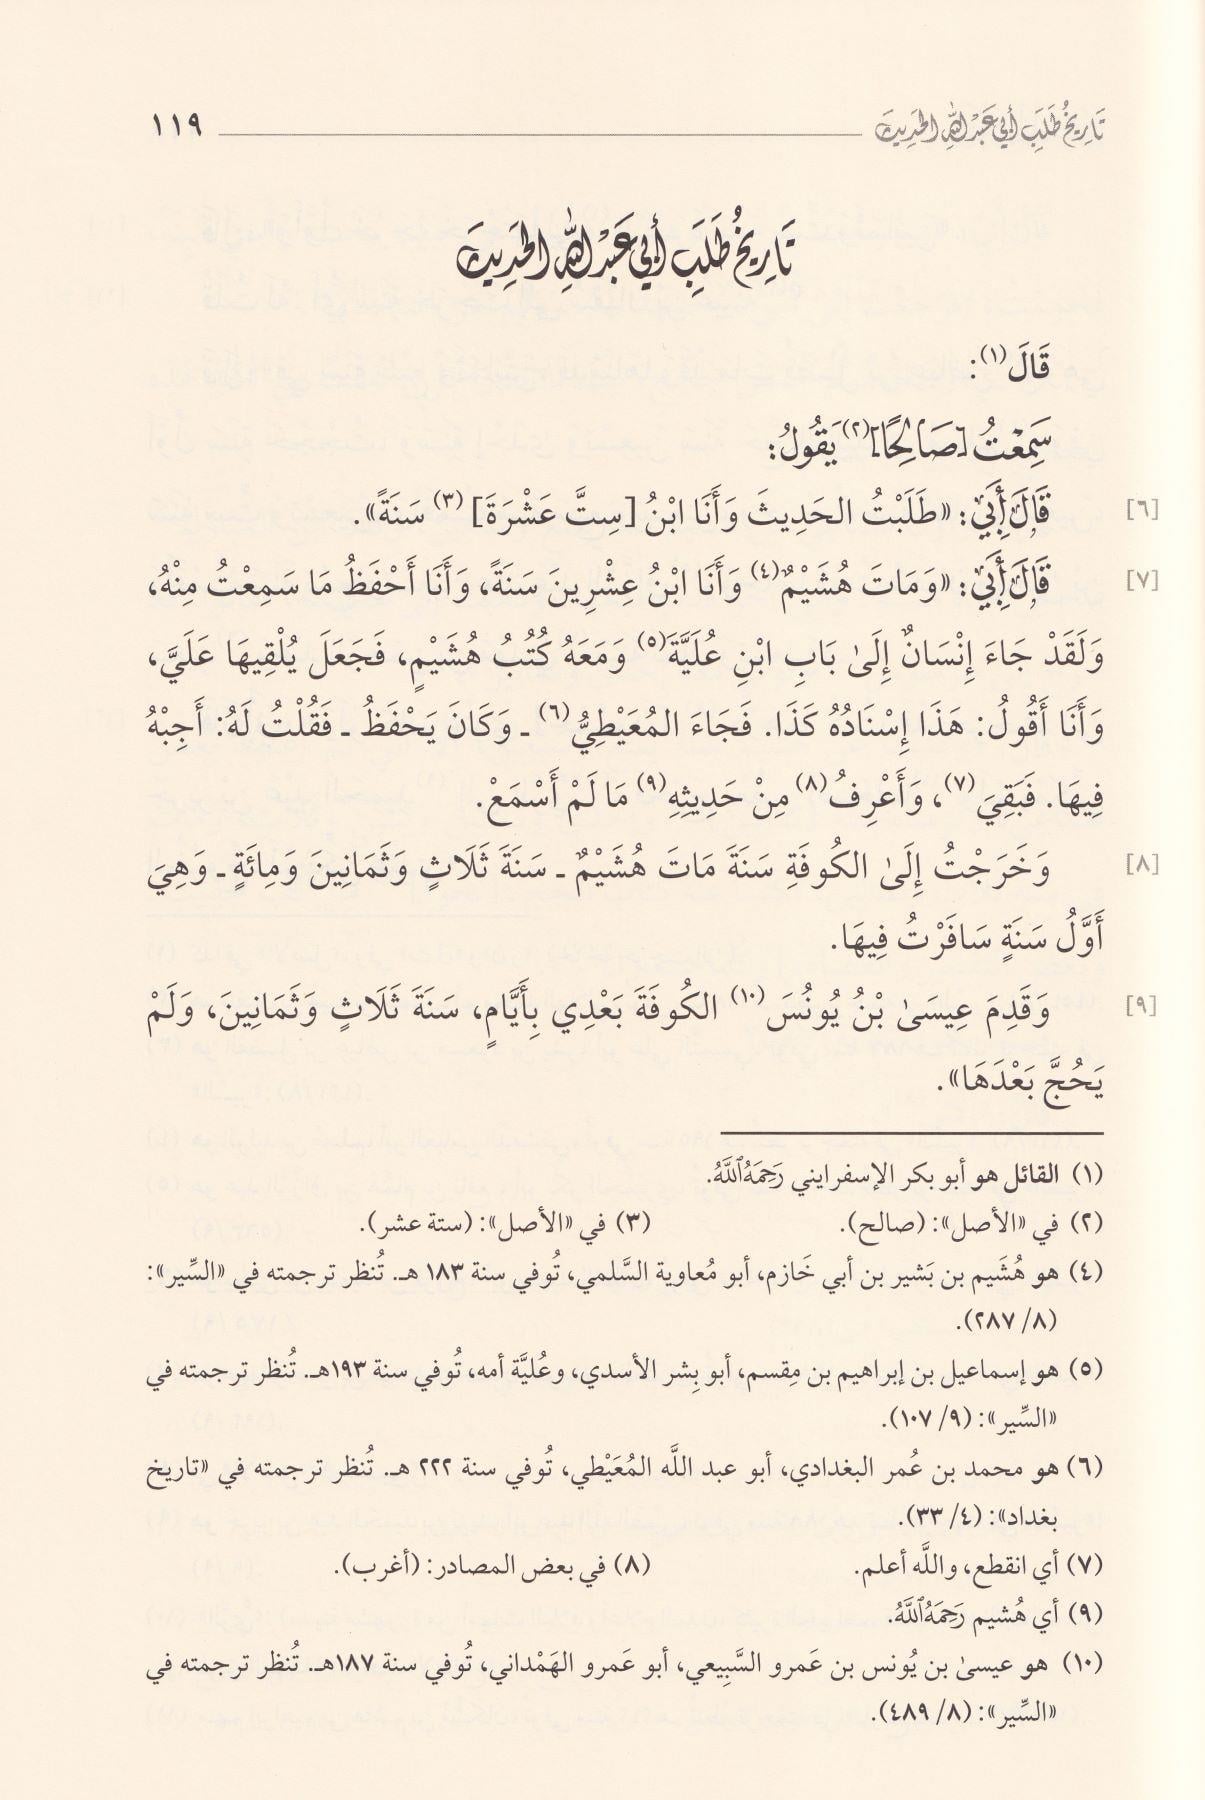 تَارِيخُ طَلَبِ أَبِي عَبْدِ اللهِ الحَدِيثَ ١١٩
تَارِيخُ طَلَبِ أَبِي عَبْدِ اللهِ الحَدِيثَ
قَالَ(١):
سَمِعْتُ [صَالِحًا](٢) يَقُولُ:
[٦] قَالَ أَبِي: «طَلَبْتُ الحَدِيثَ وَأَنَا ابْنُ [سِتَّ عَشْرَةَ](٣) سَنَةً».
[٧] قَالَ أَبِي: «وَمَاتَ هُشَيْمٌ(٤) وَأَنَا ابْنُ عِشْرِينَ سَنَةً، وَأَنَا أَحْفَظُ مَا سَمِعْتُ مِنْهُ،
وَلَقَدْ جَاءَ إِنْسَانٌ إِلَىٰ بَابِ ابْنِ عُلَيَّةَ(٥) وَمَعَهُ كُتُبُ هُشَيْمٍ، فَجَعَلَ يُلْقِيهَا عَلَيَّ،
وَأَنَا أَقُولُ: هَذَا إِسْنَادُهُ كَذَا. فَجَاءَ المُعَيْطِيُّ(٦) ـ وَكَانَ يَحْفَظُ ـ فَقُلْتُ لَهُ: أَجِبْهُ
فِيهَا. فَبَقِيَ(٧)، وَأَعْرِفُ(٨) مِنْ حَدِيثِهِ(٩) مَا لَمْ أَسْمَعْ.
[٨] وَخَرَجْتُ إِلَىٰ الكُوفَةِ سَنَةَ مَاتَ هُشَيْمٌ ـ سَنَةَ ثَلَاثٍ وَثَمَانِينَ وَمِائَةٍ ـ وَهِيَ
أَوَّلُ سَنَةٍ سَافَرْتُ فِيهَا.
[٩] وَقَدِمَ عِيسَىٰ بْنُ يُونُسَ(١٠) الكُوفَةَ بَعْدِي بِأَيَّامٍ، سَنَةَ ثَلَاثٍ وَثَمَانِينَ، وَلَمْ
يَحُجَّ بَعْدَهَا».
(١) القائل هو أبو بكر الإسفرايني رَحِمَهُ ٱللَّهُ.
(٢) في «الأصل»: (صالح). (٣) في «الأصل»: (ستة عشر).
(٤) هو هُشَيم بن بَشير بن أبي خَازم، أبو مُعاوية السَّلمي، تُوفي سنة ١٨٣ هـ. تُنظر ترجمته في «السِّير»:
(٨/ ٢٨٧).
(٥) هو إسماعيل بن إبراهيم بن مِقسم، أبو بِشر الأسدي، وعُليَّة أمه، تُوفي سنة ١٩٣هـ. تُنظر ترجمته في
«السِّير»: (٩/ ١٠٧).
(٦) هو محمد بن عُمر البغدادي، أبو عبد اللَّه المُعَيْطي، تُوفي سنة ٢٢٢ هـ. تُنظر ترجمته في «تاريخ
بغداد»: (٤/ ٣٣).
(٧) أي انقطع، واللَّه أعلم. (٨) في بعض المصادر: (أغرب).
(٩) أي هُشيم رَحِمَهُ ٱللَّهُ.
(١٠) هو عيسىٰ بن يُونس بن عَمرو السَّبِيعي، أبو عَمرو الهَمْداني، تُوفي سنة ١٨٧هـ. تُنظر ترجمته في
«السِّير»: (٨/ ٤٨٩).